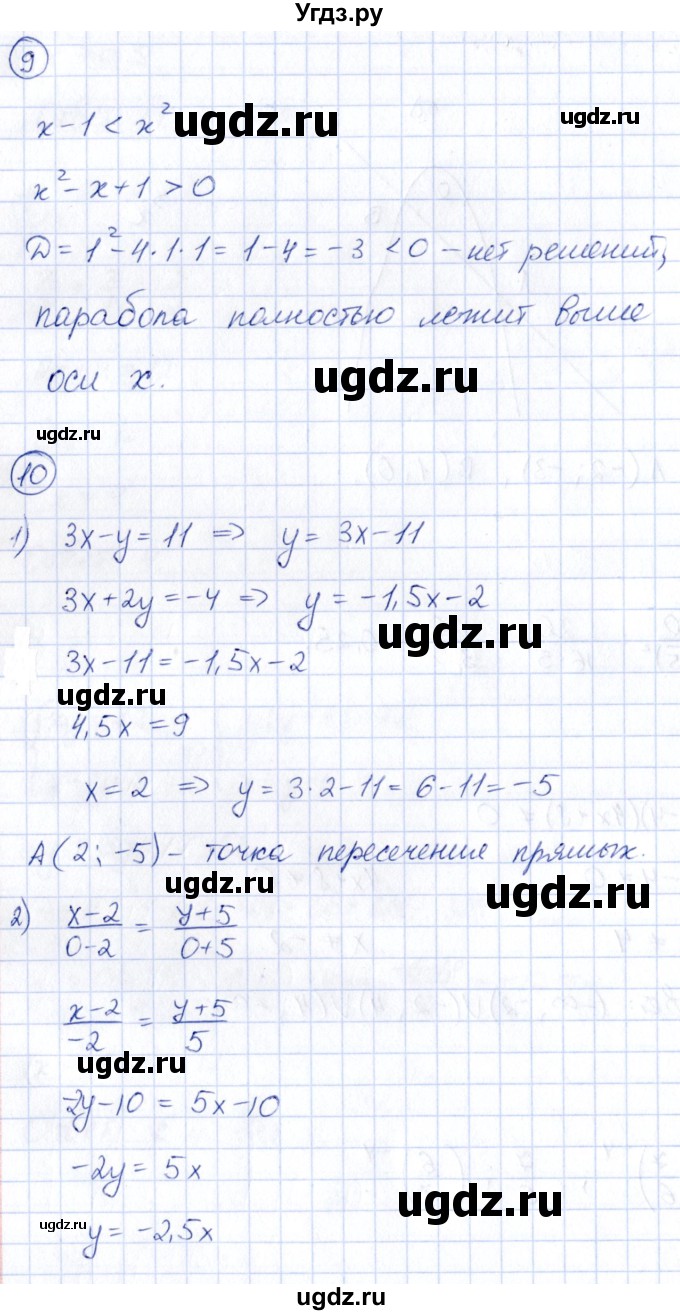 Угдз.ру
9
x-1<x² ugdz.ru ugdz.ru
x²-x+1>0
D=1²-4·1·1=1-4=-3<0 – нет решений,
парабола полностью лежит выше
оси x. ugdz.ru
ugdz.ru
10
1) 3x-y=11 => y=3x-11
3x+2y=-4 => y=-1,5x-2
ugdz.ru
3x-11=-1,5x-2
ugdz.ru
4,5x=9
x=2 => y=3·2-11=6-11=-5
A(2;-5) – точка пересечения прямых.
ugdz.ru ugdz.ru
2) (x-2)/(0-2) = (y+5)/(0+5)
(x-2)/(-2) = (y+5)/5
ugdz.ru
-2y-10=5x-10
-2y=5x
ugdz.ru
ugdz.ru y=-2,5x
ugdz.ru